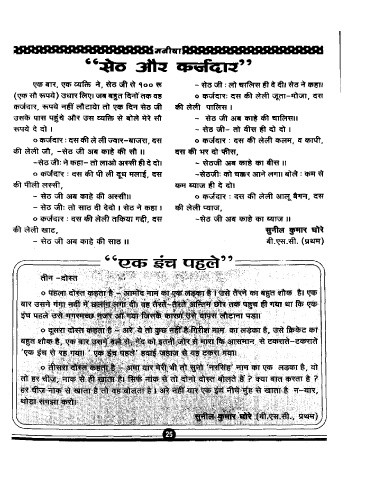 मनीषा
"सेठ और कर्जदार"
एक बार, एक व्यक्ति ने, सेठ जी से १०० रू
(एक सौ रूपये) उधार लिए। जब बहुत दिनों तक वह
कर्जदार, रूपये नहीं लौटाये। तो एक दिन सेठ जी
उसके पास पहुंचे और उस व्यक्ति से बोले मेरे सौ
रूपये दे दो ।
० कर्जदार : दस की ले ली ज्वार-बाजरा, दस
की लेली जौ, -सेठ जी अब काहे की सौ ।।
-सेठ जी: ने कहा- तो लाओ अस्सी ही दे दो।
० कर्जदार : दस की पी ली दूध मलाई, दस
की पीली लस्सी,
- सेठ जी अब काहे की अस्सी।।
- सेठ जी: तो साठ दी देदो । सेठ ने कहा ।
० कर्जदार : दस की लेली तकिया गद्दी, दस
की लेली खाट,
- सेठ जी अब काहे की साठ ।।
- सेठ जी : लो चालिस ही दे दी। सेठ ने कहा।
० कर्जदार : दस की लेली जूता-मौजा, दस
की लेली पालिस ।
- सेठ जी अब काहे की चालिस।।
- सेठ जी- तो बीस ही दो दो ।
० कर्जदार : दस की लेली कलम, व कापी,
दस की भर दी फीस,
- सेठजी अब काहे का बीस ।।
-सेठजी: को चक्कर आने लगा। बोले : कम से
कम ब्याज ही दे दो।
० कर्जदार : दस की लेली आलू बैगन, दस
की लेली प्याज,
-सेठ जी अब काहे का ब्याज ।।
सुनील कुमार घोरे
बी.एस.सी. (प्रथम)
"एक इंच पहले"
तीन -दोस्त
० पहला दोस्त कहता है - आमोद नाम का एक लड़का है। उसे तैरने का बहुत शौक है। एक
बार उसने गंगा नदी में छलांग लगा दी। वह तैरते-तैरते अन्तिम छोर तक पहुच ही गया था कि एक
इंच पहले उसे मगरमच्छ नजर आ गया जिसके कारण उसे वापस लौटाना पड़ा।
० दूसरा दोस्त कहता है - अरे, ये तो कुछ नहीं है गिरीश नाम का लड़का है, उसे क्रिकेट का
बहुत शौक है, एक बार उसने बल्ले से, गेंद को इतनी जोर से मारा कि आसमान से टकराते-टकराते
'एक इंच से रह गया। ' एक इंच पहले' हवाई जहाज से वह टकरा गया।
० तीसरा दोस्त कहता है - अमा यार मेरी भी तो सुनो 'नरसिंह' नाम का एक लड़का है, वो
तो हर चीज, नाक से ही खाता है। सिर्फ नाक से तो दोनो दोस्त बोलते हैं ? क्या बात करता है ?
हर चीज नाक से खाता है तो वह बोलता है । अरे नहीं यार एक इंच नीचे मुंह से खाता है न-यार,
थोड़ा समझा करो।
सुनील कुमार घोरे (बी.एस.सी., प्रथम)
25